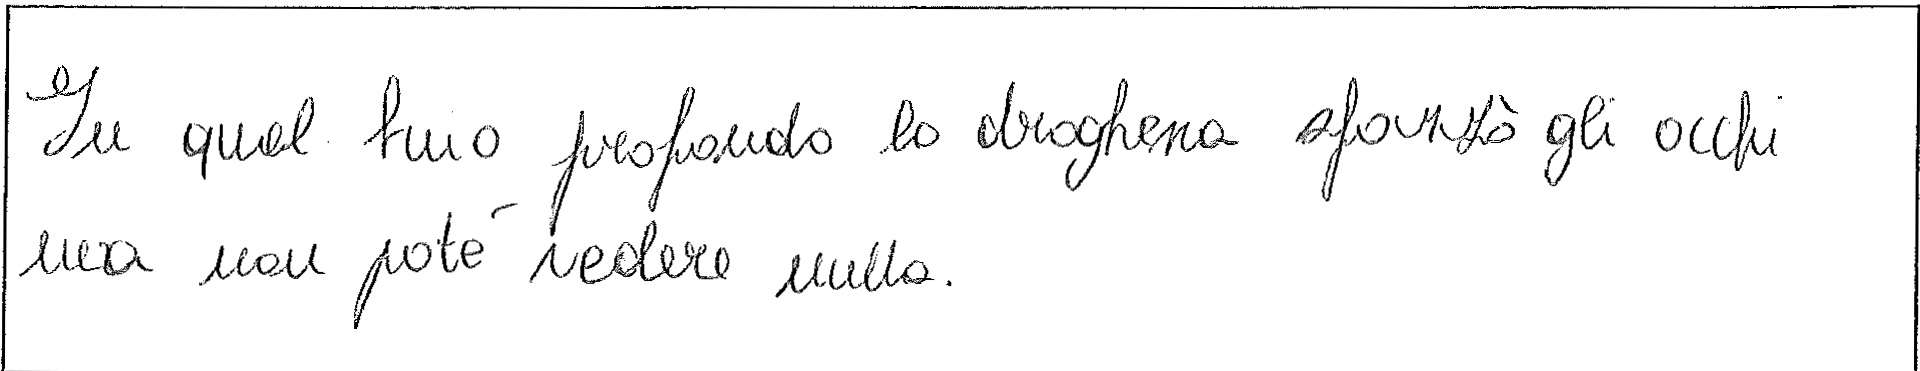 In quel buio profondo la droghena sforzò gli occhi
ma non poté vedere nulla.